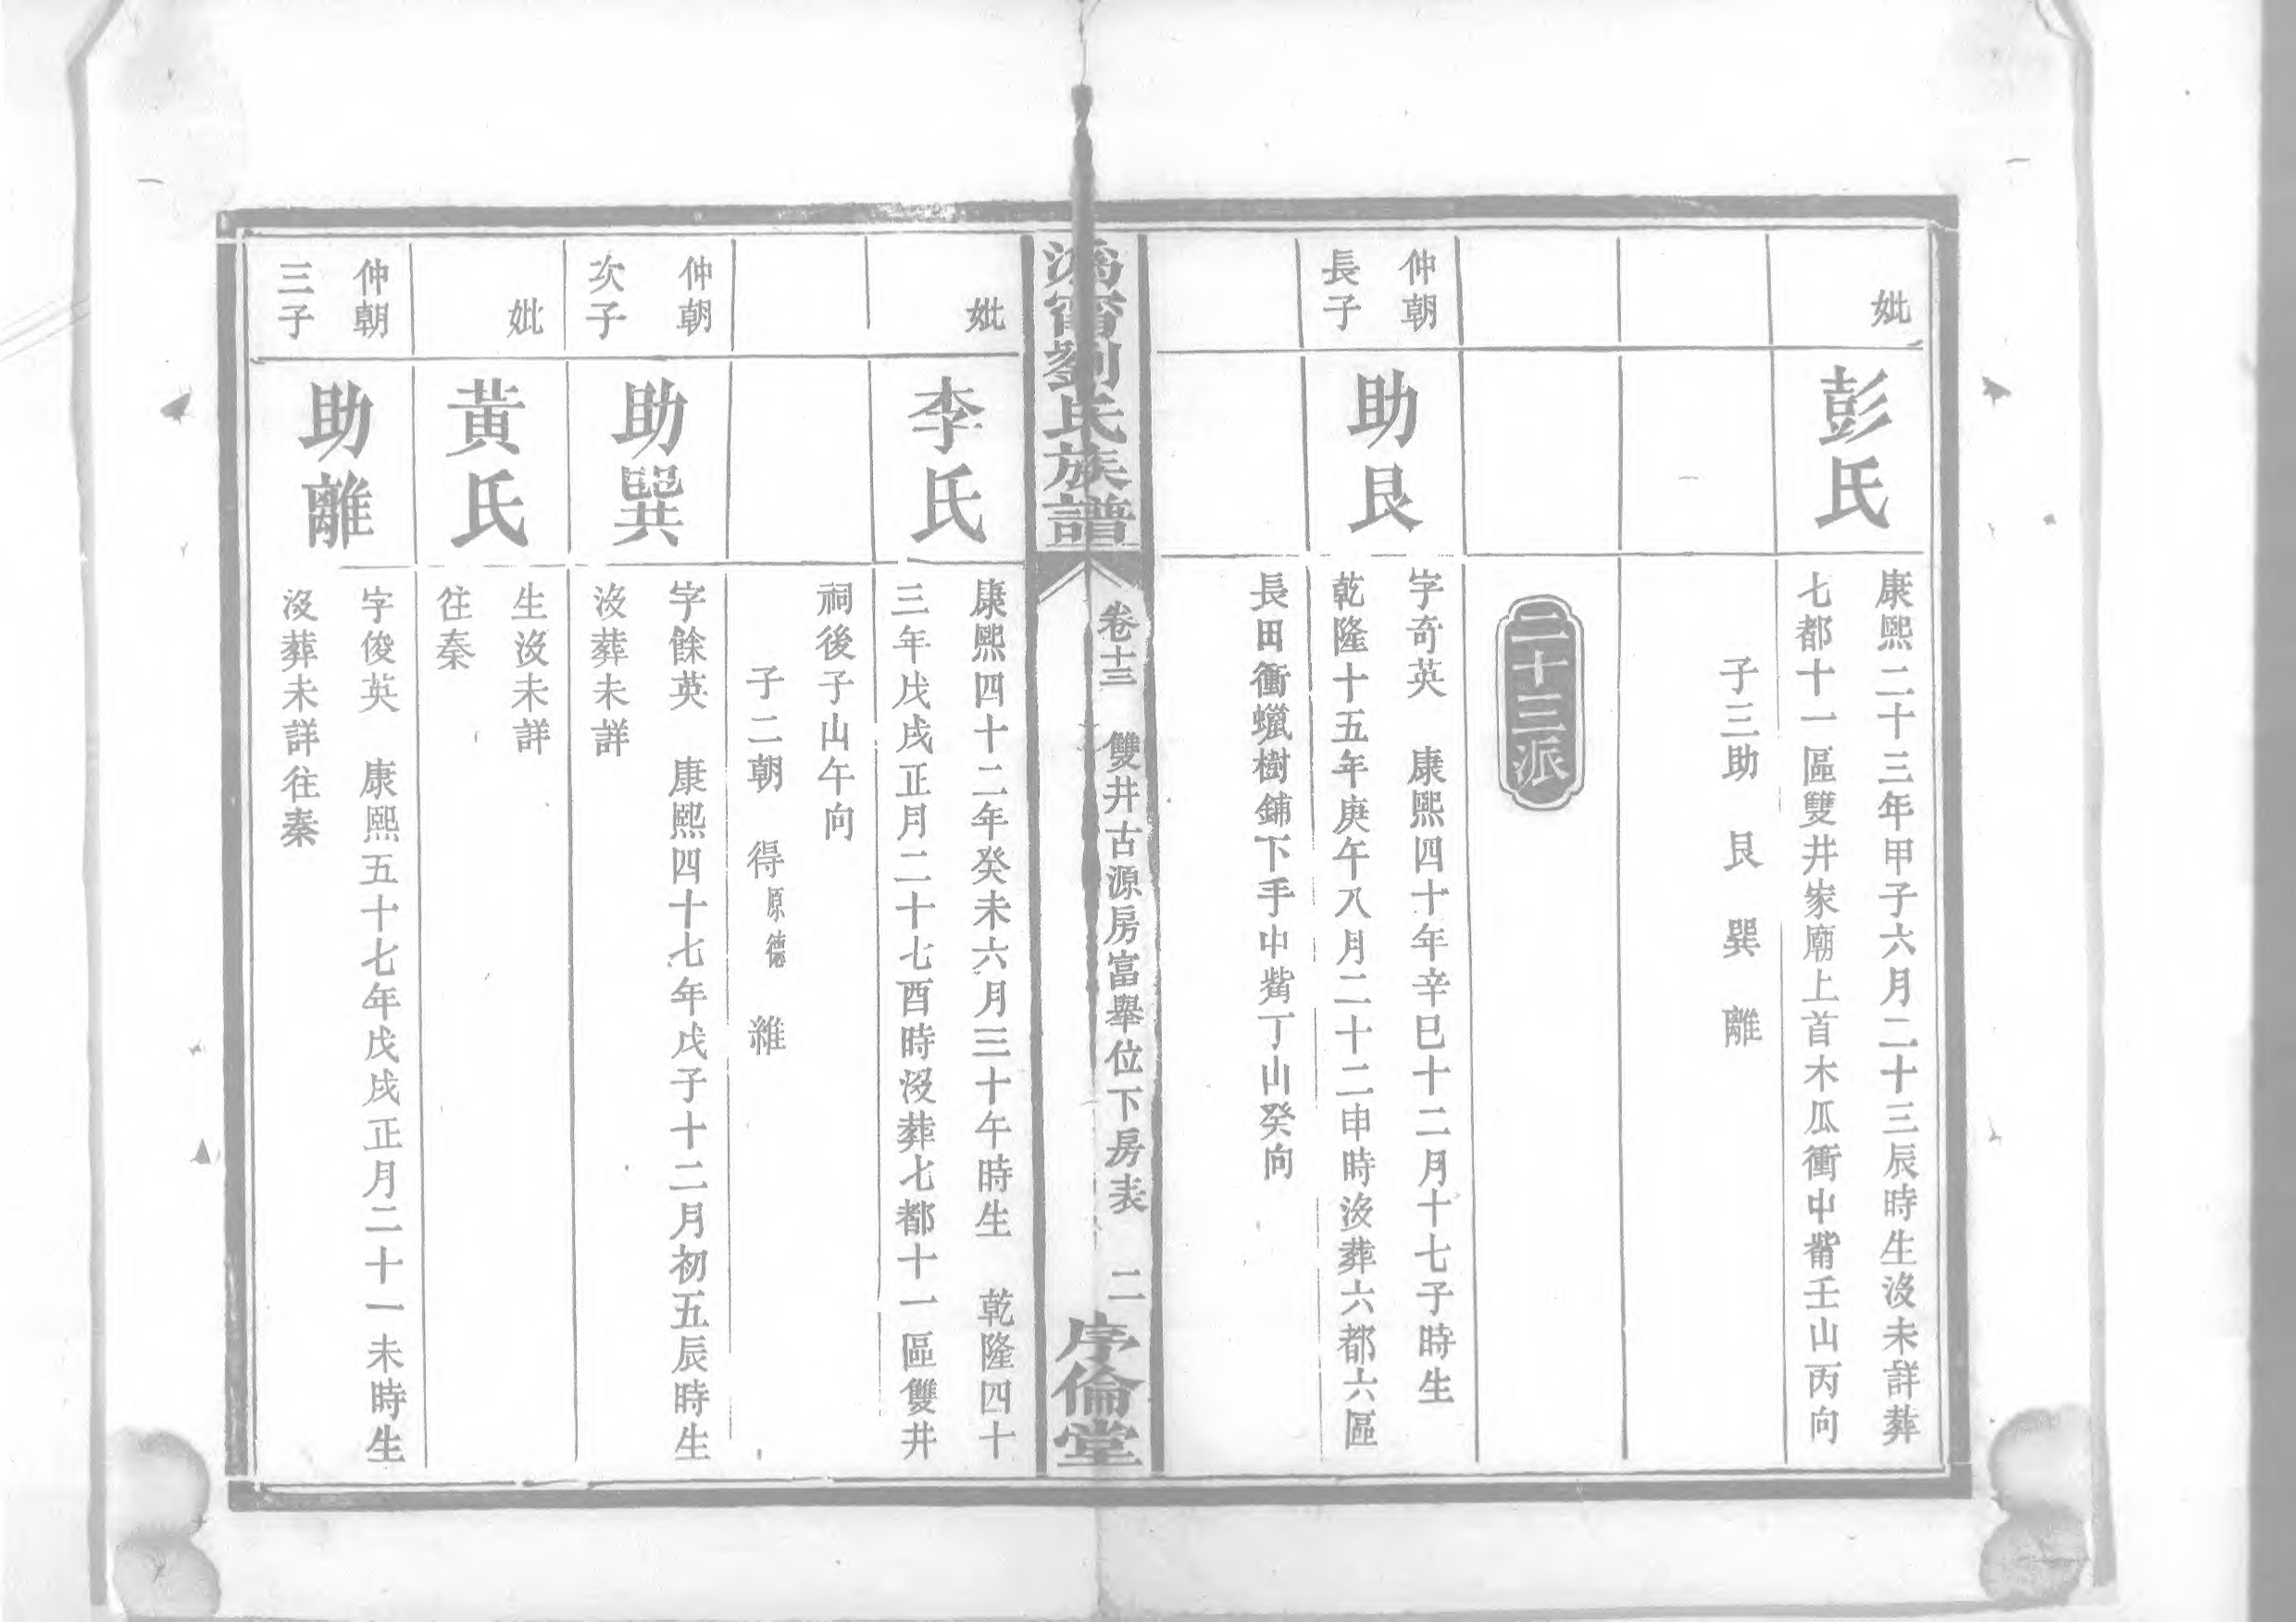 妣
彭氏
康熙二十三年甲子六月二十三辰時生沒未詳葬
七都十一區雙井家廟上首木瓜衝中嘴壬山丙向
子三助 艮 巽 離
二十三派
仲朝
長子
助艮
字奇英 康熙四十年辛巳十二月十七子時生
乾隆十五年庚午八月二十二申時沒葬六都六區
長田衝蠟樹鋪下手中嘴丁山癸向
溈甯劉氏族譜
卷十三 雙井古源房富舉位下房表 二
序倫堂
妣
李氏
康熙四十二年癸未六月三十午時生 乾隆四十
三年戊戌正月二十七酉時沒葬七都十一區雙井
祠後子山午向
子二朝 得原德 雜
仲朝
次子
助巽
字餘英 康熙四十七年戊子十二月初五辰時生
沒葬未詳
妣
黃氏
生沒未詳
往秦
仲朝
三子
助離
字俊英 康熙五十七年戊戌正月二十一未時生
沒葬未詳往秦